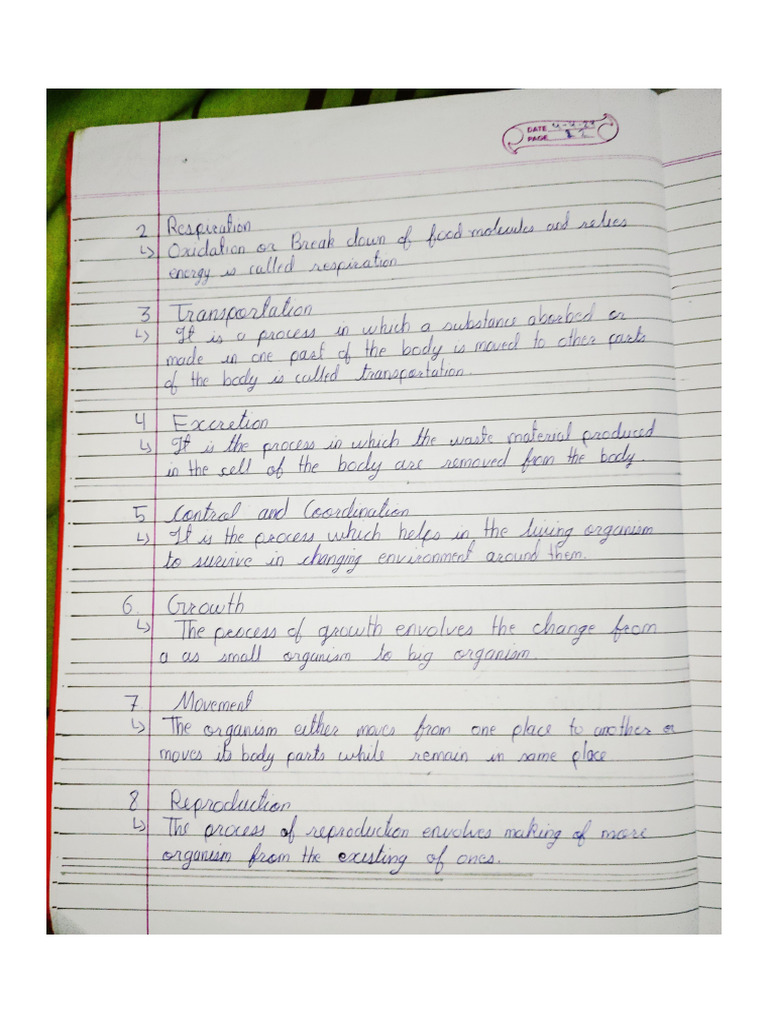 DATE 4-4-23
PAGE
2 Respiration
↳ Oxidation or Break down of food molecules and relies
energy is called respiration
3 Transportation
↳ It is a process in which a substance aborbed or
made in one part of the body is moved to other parts
of the body is called transportation.
4 Excretion
↳ It is the process in which the waste material produced
in the cell of the body are removed from the body.
5 Control and Coordination
↳ It is the process which helps in the living organism
to survive in changing environment around them.
6. Growth
↳ The process of growth envolves the change from
a as small organism to big organism.
7 Movement
↳ The organism either moves from one place to another or
moves its body parts while remain in same place
8 Reproduction
↳ The process of reproduction envolves making of more
organism from the existing of ones.